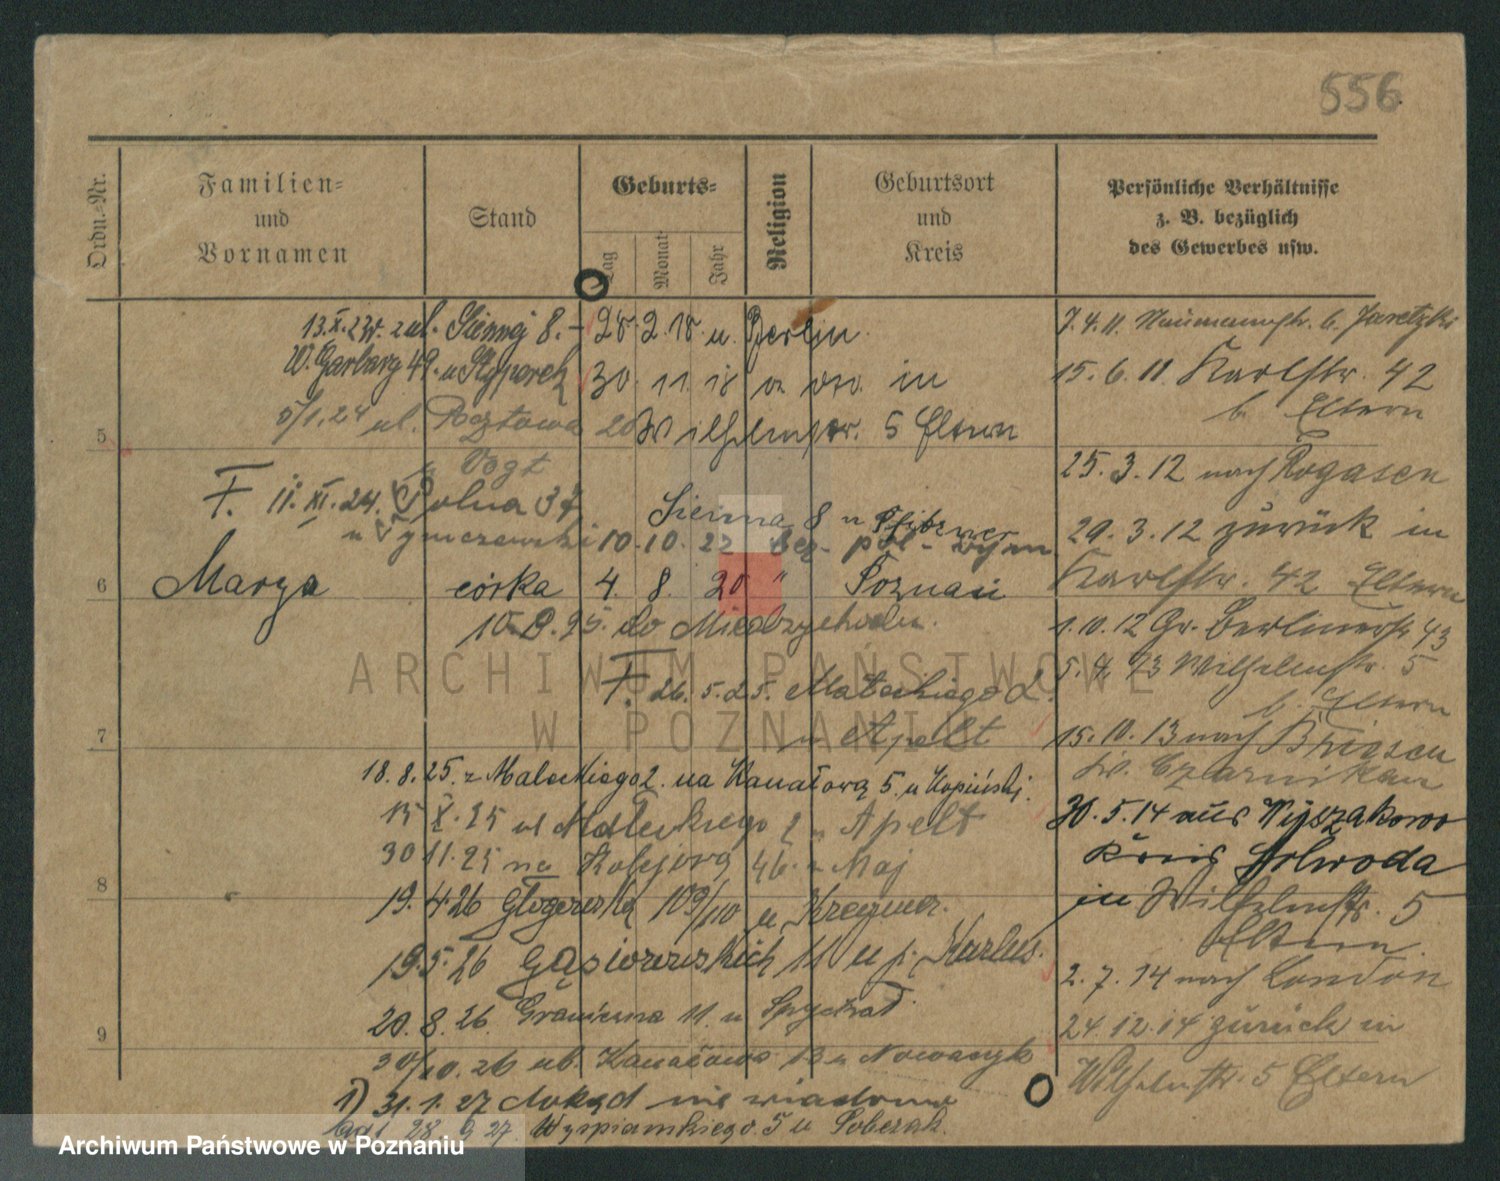 556
Ordn.-Nr.
Familien-
und
Vornamen
Stand
Geburts-
Tag
Monat
Jahr
Religion
Geburtsort
und
Kreis
Persönliche Verhältnisse
z. B. bezüglich
des Gewerbes usw.
13.X.23r. z ul. Siennej 8. –
W. Garbary 49. u
5/1.24 ul. Pocztowa 20
u Vogt
5
F. 11. XI. 24. Polna 37
28. 2. 18. u. Berlin.
30. 11. 18 in
Wilhelmstr. 5 Eltern
Sienna 8 u Pfitzner
10. 10. 22
6 Marya córka 4. 8. 20 " Poznań
10. 9. 25. do Międzychodu.
F. 26. 5. 25. Mateckiego 2.
u Apelt
7
18. 8. 25. z Mateckiego 2. na Kanałową 5. u Kopiński.
15 X. 25 ul Mateckiego 2 u Apelt
30 11. 25 na Kolejową 46. u Maj
8
19. 4. 26 Głogowska 109/110 u
19. 5. 26 Gąsiorowskich 11 u p.
20. 8. 26. Graniczna 11. u
9
30/10. 26 ul. Kanałowa 13 u Nowaczyk
1) 31. 1. 27 dokąd nie wiadomo
28. 9 27. Wyspiańskiego. 5 u Sobczak.
7. 4. 11. Naumannstr. 6. Jaretzki
15. 6. 11. Karlstr. 42
b. Eltern
25. 3. 12 nach Rogasen
29. 3. 12 zurück in
Karlstr. 42 Eltern
1. 10. 12 Gr. Berlinerstr 43
5. 4. 13 Wilhelmstr. 5
b. Eltern
15. 10. 13 nach Briesen
Kr. Czarnikau
30. 5. 14 aus Wyszakowo
Kreis Schroda
in Wilhelmstr. 5
Eltern
2. 7. 14 nach London
24. 12. 14 zurück in
Wilhelmstr. 5 Eltern
ARCHIWUM PAŃSTWOWE
W POZNANIU
Archiwum Państwowe w Poznaniu